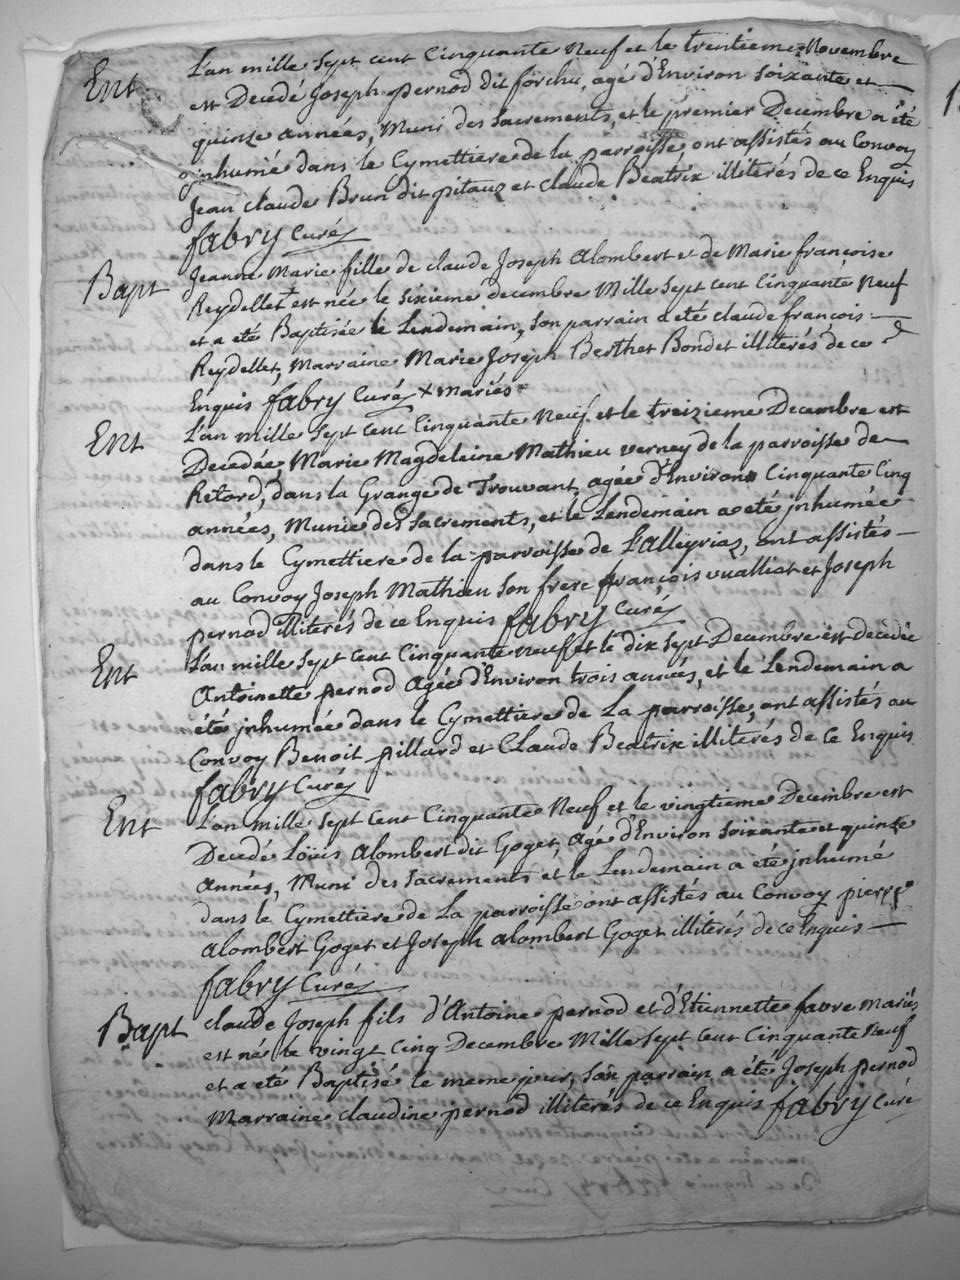 Ent
L'an mille sept cent Cinquante Neuf et le trentieme Novembre
est Decedé Joseph pernod dit forchu, agé d'Environ soixante et
quinze années, Muni des sacrements, et le premier Decembre a été
jnhumé dans le Cymettiere de la parroisse ont assistés au Convoy
Jean claude Brun dit pitaud et claude Beatrix illiterés de ce Enquis
fabry Curé
Bapt
Jeanne Marie fille de claude Joseph Alombert et de Marie françoise
Reydellet + est née le sixieme decembre Mille sept cent Cinquante Neuf
et a été Baptisée le Lendemain, son parrain a été claude françois
Reydellet, Marraine Marie Joseph Berthet Bondet illiterés de ce
Enquis fabry Curé + mariés
Ent
L'an mille sept cent Cinquante Neuf et le treizieme Decembre est
Decedée Marie Magdeleine Mathieu verney de la parroisse de
Retord, dans la Grange de Trouvant, agée d'Environ Cinquante Cinq
années, Munie des sacrements, et le Lendemain a été jnhumée
dans le Cymettiere de la parroisse de L'alleyriaz, ont assistés
au Convoy Joseph Mathieu son frere françois vualliet et Joseph
pernod illiterés de ce Enquis fabry Curé
Ent
L'an mille sept cent Cinquante neuf et le dix sept Decembre est decedée
Antoinette pernod Agée d'Environ trois années, et le Lendemain a
été jnhumée dans le Cymettiere de La parroisse, ont assistés au
Convoy Benoit pillard et Claude Beatrix illiterés de Ce Enquis
fabry Curé
Ent
L'an mille sept Cent Cinquante Neuf et le vingtieme Decembre est
Decedé Loüis Alombert dit Goget, Agé d'Environ soixante et quinze
Années, Muni des sacrements et le Lendemain a été jnhumé
dans le Cymettiere de La parroisse ont assistés au Convoy pierre
Alombert Goget et Joseph alombert Goget illiterés de ce Enquis
fabry Curé
Bapt
claude Joseph fils d'Antoine pernod et d'Etiennette favre mariés
est né le vingt Cinq Decembre Mille sept Cent Cinquante Neuf
et a été Baptisé le meme jour, son parrain a été Joseph pernod
Marraine claudine pernod illiterés de ce Enquis fabry Curé